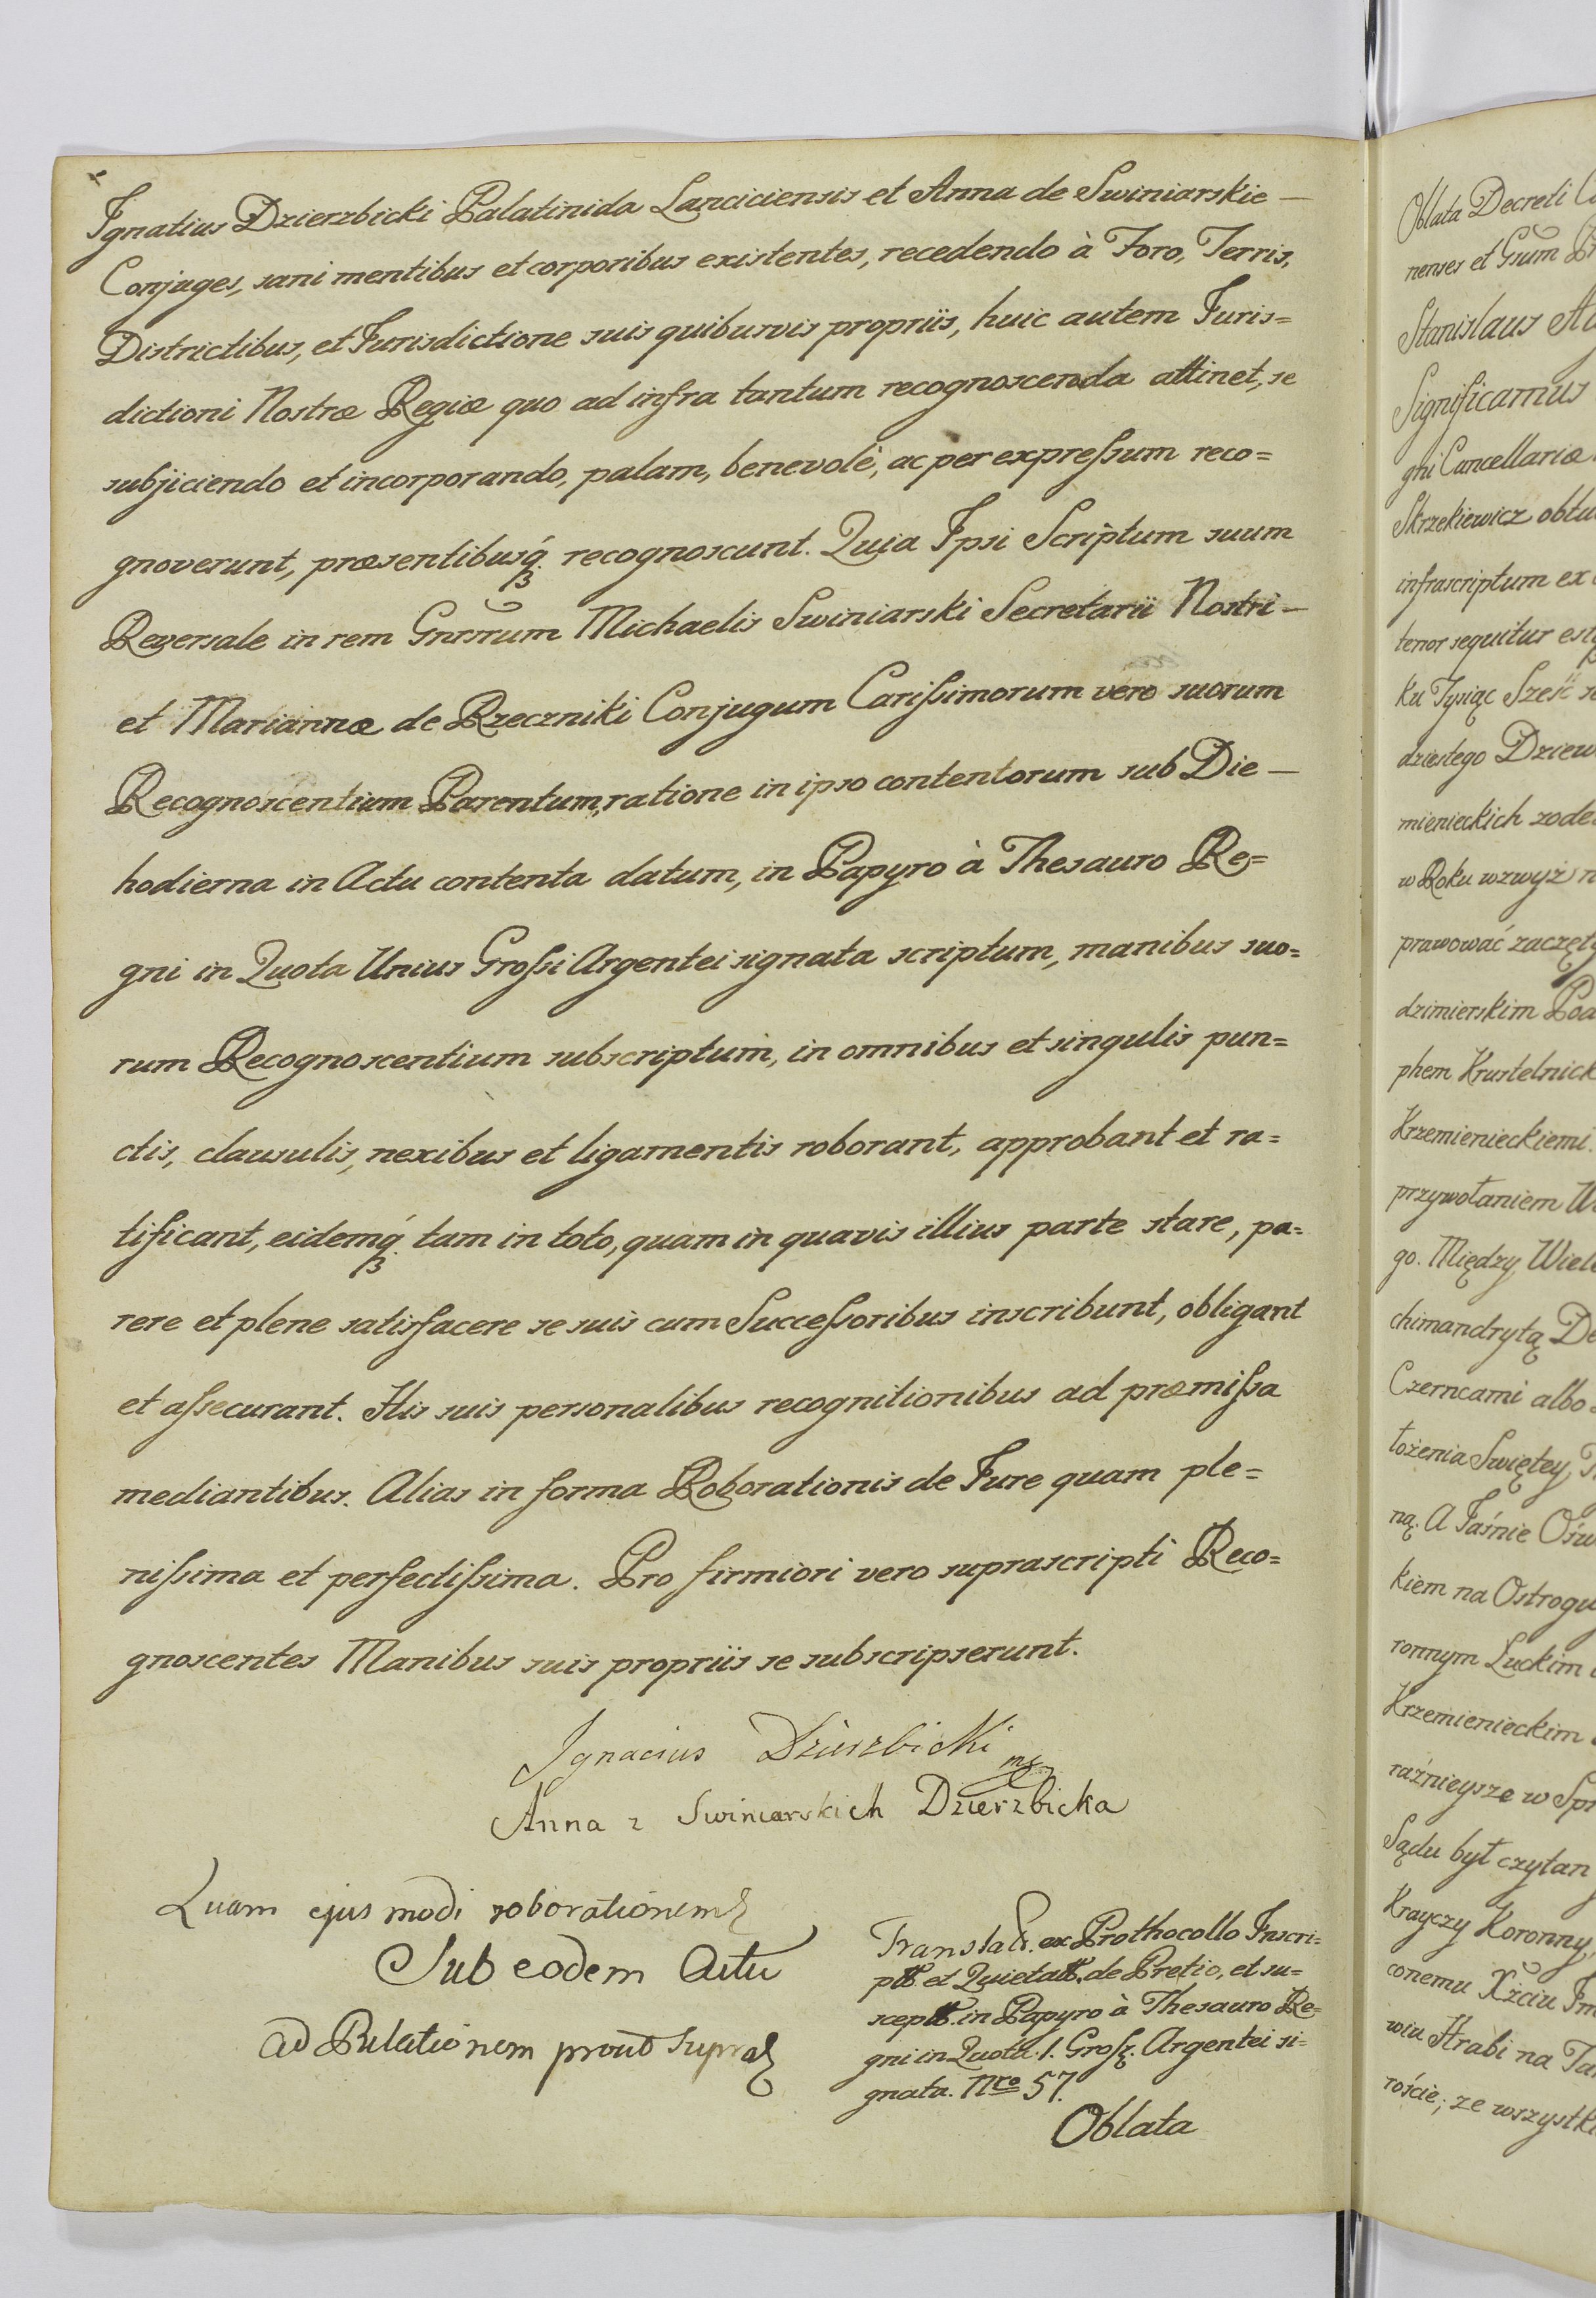 Ignatius Dzierzbicki Palatinida Lanciciensis et Anna de Swiniarskie —
Conjuges, sani mentibus et corporibus existentes, recedendo à Foro, Terris,
Districtibus, et Jurisdictione suis quibusvis propriis, huic autem Juris=
dictioni Nostræ Regiæ quo ad infra tantum recognoscenda attinet, se
subjiciendo et incorporando, palam, benevolè, ac per expreſsum reco=
gnoverunt, præsentibusq́ꝫ recognoscunt. Quia Ipsi Scriptum suum
Reversale in rem Gnrsrum Michaelis Swiniarski Secretarii Nostri —
et Mariannæ de Rzeczniki Conjugum Cariſsimorum vero suorum
Recognoscentium Parentum, ratione in ipso contentorum sub Die —
hodierna in Actu contenta datum, in Papyro à Thesauro Re=
gni in Quota Unius Groſsi Argentei signata scriptum, manibus suo=
rum Recognoscentium subscriptum, in omnibus et singulis pun=
ctis, clausulis, nexibus et ligamentis roborant, approbant et ra=
tificant, eidemq́ꝫ tam in toto, quam in quavis illius parte stare, pa=
rere et plene satisfacere se suis cum Succeſsoribus inscribunt, obligant
et aſsecurant. His suis personalibus recognitionibus ad præmiſsa
mediantibus. Alias in forma Roborationis de Jure quam ple=
niſsima et perfectiſsima. Pro firmiori vero suprascripti Reco=
gnoscentes Manibus suis propriis se subscripserunt.
Ignacius Dzierzbicki mp
Anna z Swiniarskich Dzierzbicka
Quam ejus modi roborationem
Sub eodem Actu
ad Relationem prout Supra
ex Prothocollo Inscri=
et de Pretio, et su=
in Papyro à Thesauro Re=
gni in Quota. 1. Groſz. Argentei si=
gnata. Nro 57.
Oblata
Oblata Decreti
nenses et Gsum
Stanislaus
Significamus
gni Cancellariæ
Skrzekiewicz
infrascriptum ex
tenor sequitur
ku Tysiąc Sześć
dziestego
mienieckich
w Roku wzwyż
prawować
dzimierskim
phem
Krzemienieckiemi.
przywołaniem
go. Między
chimandrytą
Czerncami albo
łożenia Swiętey
ną. A Jaśnie
kiem na
ronnym Łuckim
Krzemienieckim
raźnieysze w
Sądu był czytan
Krayczy Koronny,
conemu Xżciu
wiu Hrabi na
roście; ze